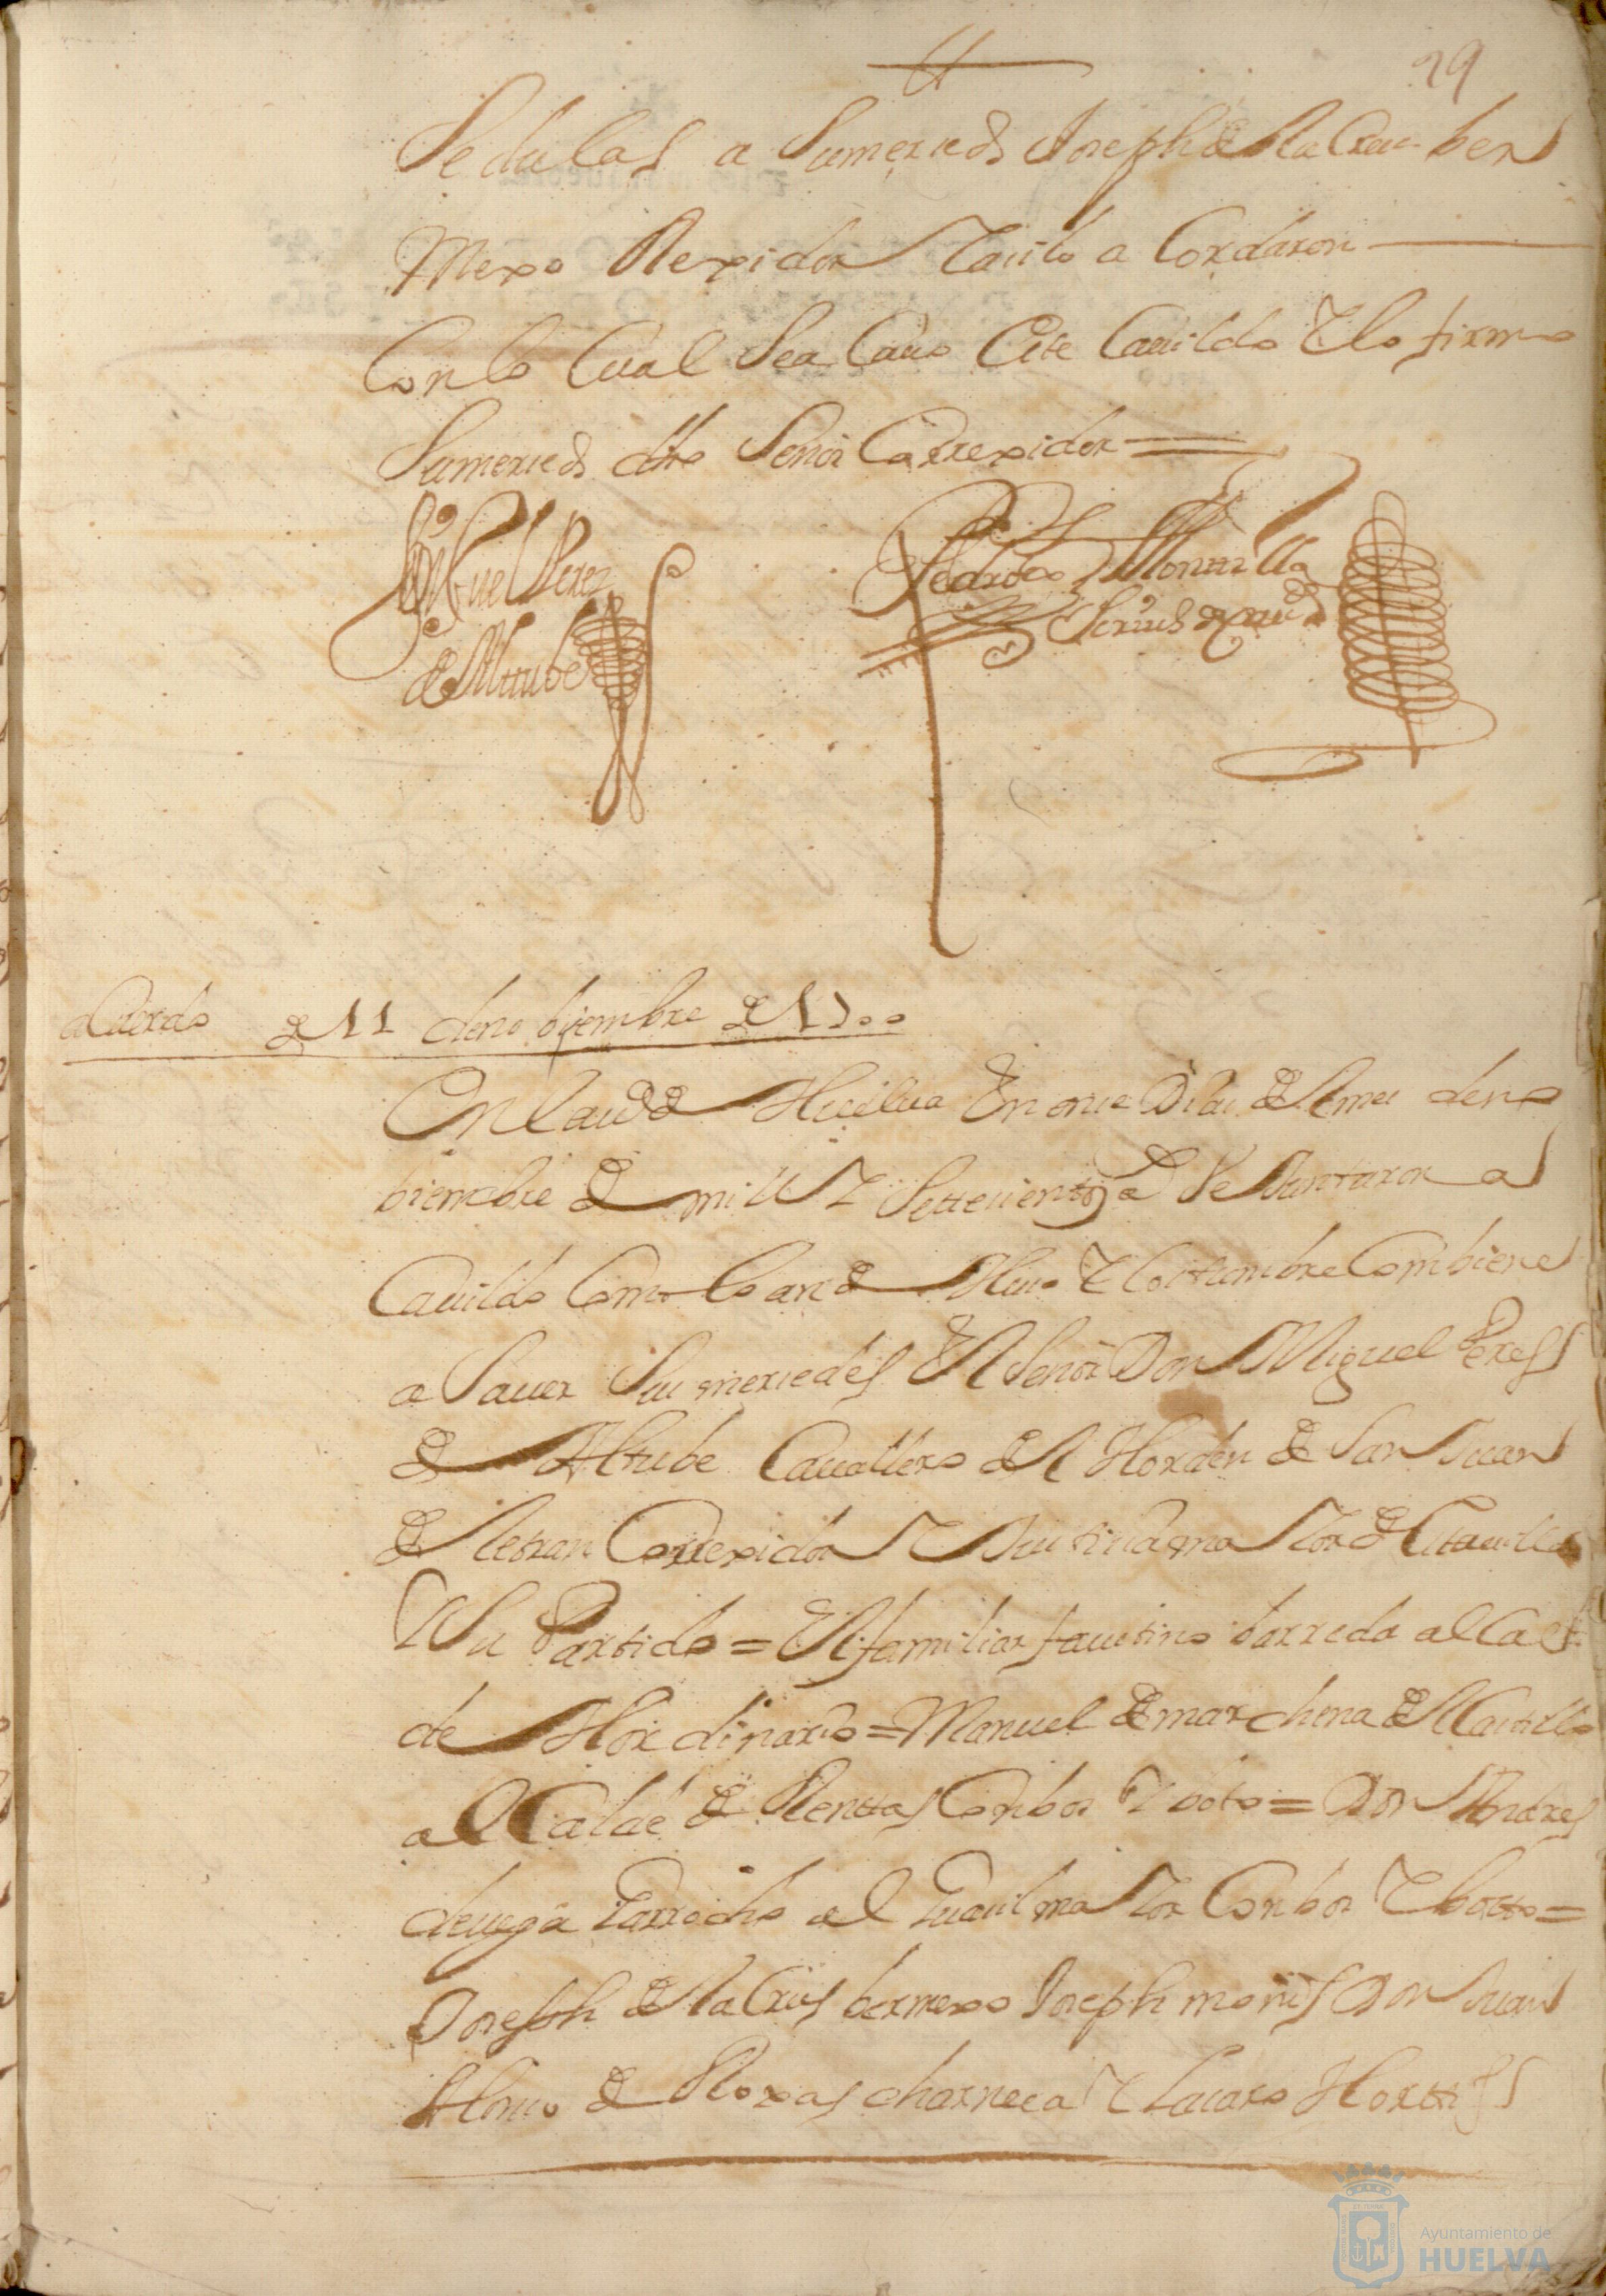 29
Sedulas a Sumerced Joseph de la Cruz ber
mexo Rexidor Y asilo acordaron
Con lo Cual Seacavo Este Cavildo Y lo firmo
Sumerced dho Señor Correxidor
Miguel Perez
de Altube
Pedro Montilla
Scriv
aCuerdo de 11 de nobiembre de 1700
En la ud de Huelva En onse Dias del mes de no
biembre de mill Y Settecientos a Se Juntaron a
Cavildo Como lo an de Huso Y Costumbre Combiene
a Saver Sus mercedes El Señor Don Miguel Peres
de Altube Cavallero del Horden de San Juan
de letran Correxidor Y Justicia maior de Esta villa
Y Su Partido = El familiar faustino barreda alCal
de Hordinario = Manuel de marchena del Castillo
alCalde de Rentas Con bos Y boto = Don Andres
de vega Garrocho alguasil maior Con bos Y botto =
Joseph de la Crus bermexo Joseph monis Don Juan
Alonso de Roxas charneca Y Lasaro Hortis
Ayuntamiento de
HUELVA